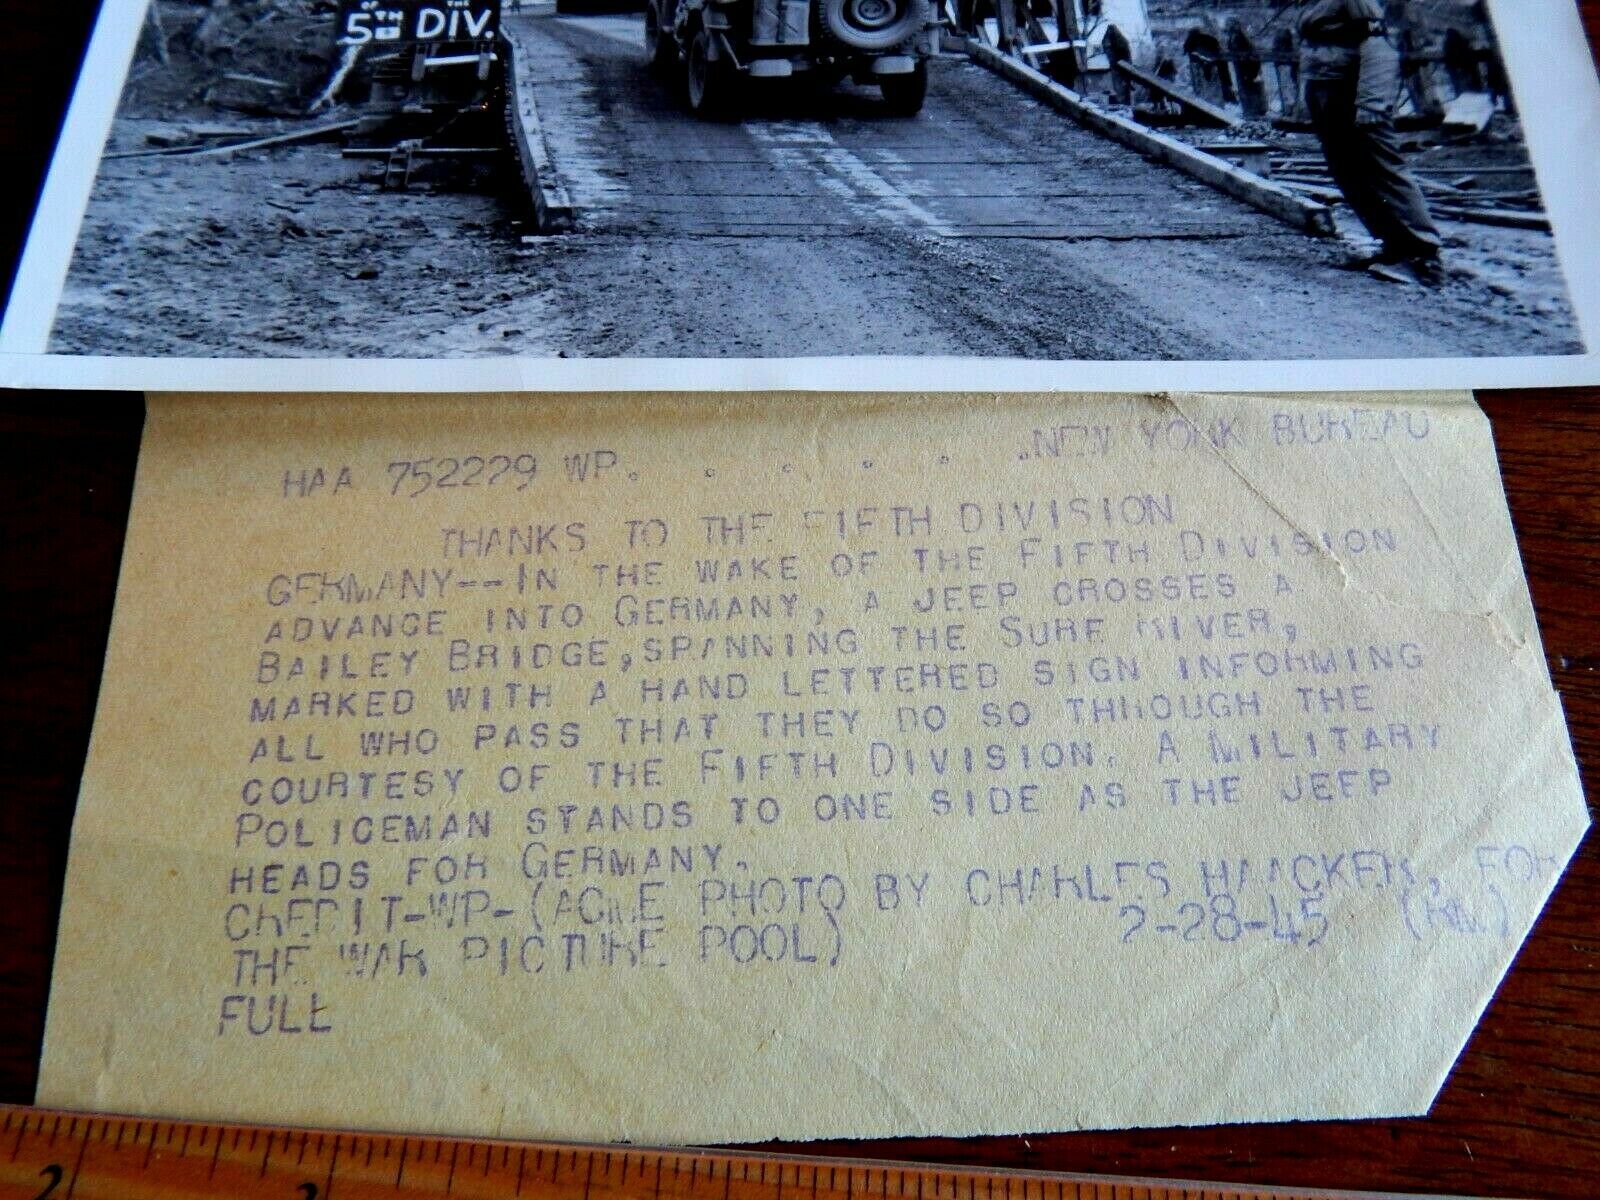 OF THE
5TH DIV.
HAA 752229 WP. . . . . . .NEW YORK BUREAU
THANKS TO THE FIFTH DIVISION
GERMANY--IN THE WAKE OF THE FIFTH DIVISION
ADVANCE INTO GERMANY, A JEEP CROSSES A
BAILEY BRIDGE, SPANNING THE SURE RIVER,
MARKED WITH A HAND LETTERED SIGN INFORMING
ALL WHO PASS THAT THEY DO SO THROUGH THE
COURTESY OF THE FIFTH DIVISION. A MILITARY
POLICEMAN STANDS TO ONE SIDE AS THE JEEP
HEADS FOR GERMANY.
CREDIT-WP-(ACME PHOTO BY CHARLES HAACKER, FOR
THE WAR PICTURE POOL) 2-28-45 (RM)
FULL
2 3